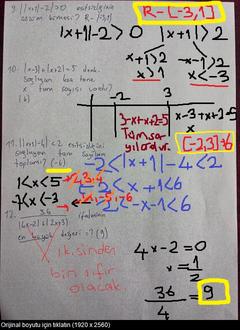 9. ||x+1|-2|>0 eşitsizliğinin
çözüm kümesi? R-[-3,1]
R-[-3,1]
|x+1|-2>0 |x+1|>2
x+1>2 -x-1>2
x>1 x<-3
10. |x-3|+|x+2|=5 denk.
sağlayan kaç tane
x tam sayısı vardır?
(6)
-2 3
3-x+x+2=5
Tamsa
yılardır.
x-3+x+2=5
[-2,3]=6
11. ||x+1|-4|<2 eşitsizliğini
sağlayan tam sayılar
toplamı? (-6)
-2<|x+1|-4<2
1<x<5 → 2,3,4
2<x+1<6
-7<x<-3
2<-x-1<6
12. ifadesinin
en büyük değeri? (9)
ikisinden
biri sıfır
olacak.
4x-2=0
x=1/2
36/4=9
Orijinal boyutu için tıklatın (1920 x 2560)